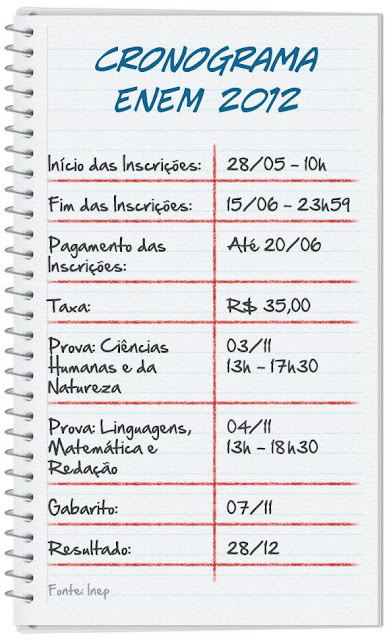 CRONOGRAMA
ENEM 2012
Início das Inscrições: 28/05 - 10h
Fim das Inscrições: 15/06 - 23h59
Pagamento das Até 20/06
Inscrições:
Taxa: R$ 35,00
Prova: Ciências 03/11
Humanas e da 13h - 17h30
Natureza
Prova: Linguagens, 04/11
Matemática e 13h - 18h30
Redação
Gabarito: 07/11
Resultado: 28/12
Fonte: Inep